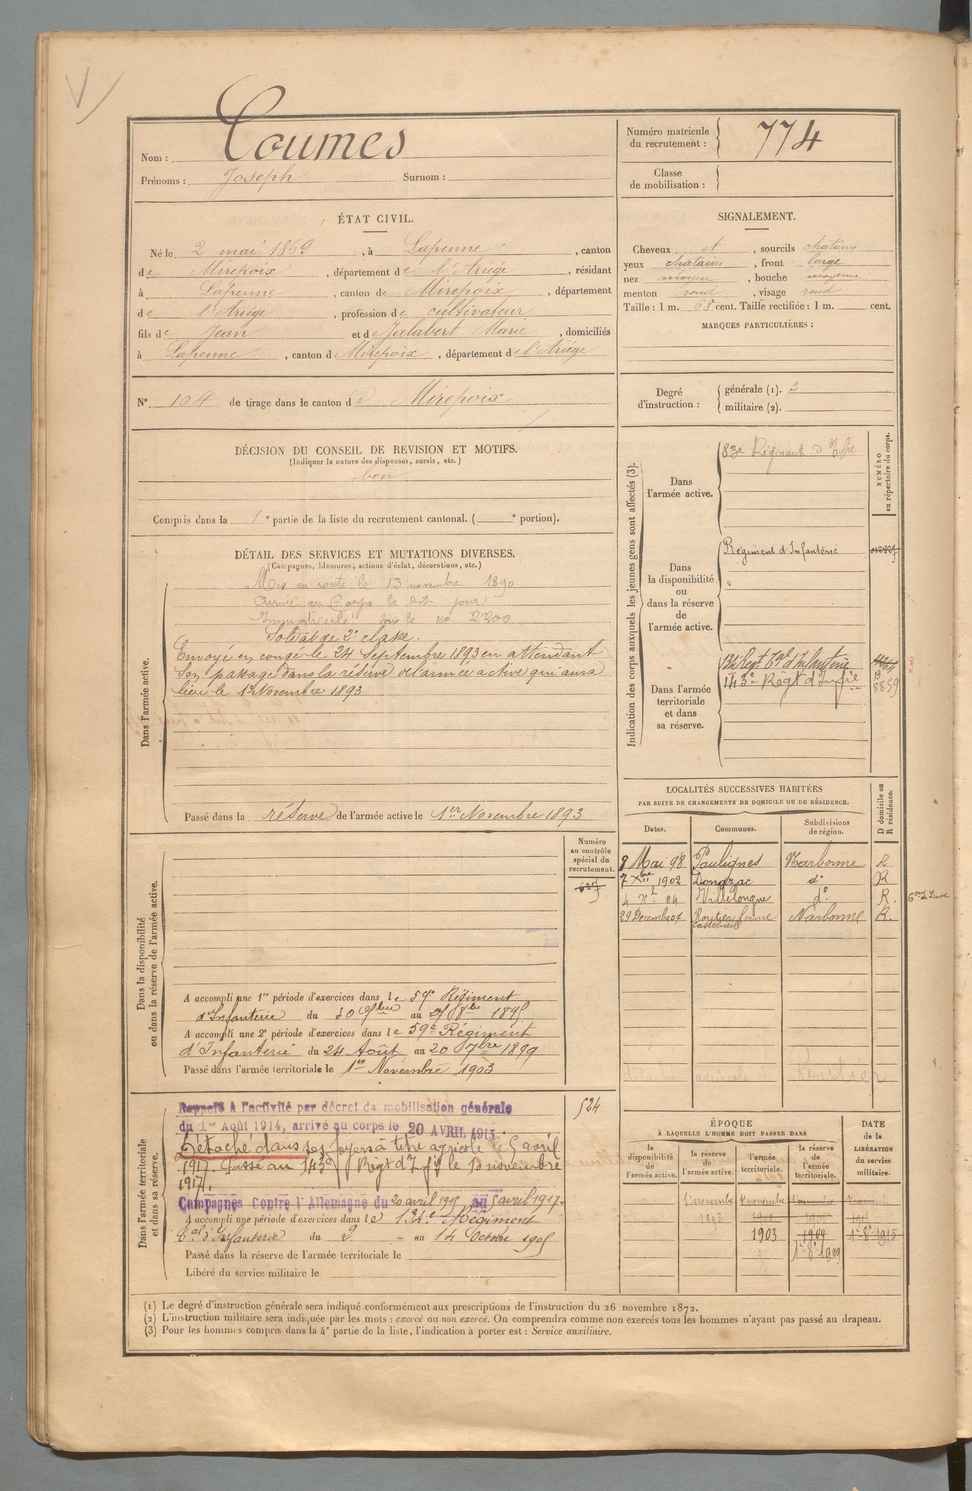 Nom : Coumes
Prénoms : Joseph Surnom :
Numéro matricule du recrutement : 774
Classe de mobilisation :
ÉTAT CIVIL.
Né le 2 mai 1869, à Lapenne, canton
de Mirepoix, département de l'Ariège, résidant
à Lapenne, canton de Mirepoix, département
de l'Ariège, profession de cultivateur
fils de Jean et de Julabert Marie, domiciliés
à Lapenne, canton de Mirepoix, département de l'Ariège
SIGNALEMENT.
Cheveux et, sourcils châtains
yeux chatains, front large
nez moyen, bouche moyenne
menton rond, visage rond
Taille : 1 m. 68 cent. Taille rectifiée : 1 m. cent.
MARQUES PARTICULIÈRES :
N° 104 de tirage dans le canton de Mirepoix
Degré d'instruction : générale (1). 2
militaire (2).
DÉCISION DU CONSEIL DE REVISION ET MOTIFS.
(Indiquer la nature des dispenses, sursis, etc.)
bon
Compris dans la 1e partie de la liste du recrutement cantonal. ( e portion).
DÉTAIL DES SERVICES ET MUTATIONS DIVERSES.
(Campagnes, blessures, actions d'éclat, décorations, etc.)
Dans l'armée active.
Mis en route le 13 novembre 1890
arrivé au Corps le dit jour
Immatriculé sous le no 2300
Soldat de 2e classe.
Envoyé en congé le 24 Septembre 1893 en attendant
son passage dans la réserve de l'armée active qui aura
lieu le 1er Novembre 1893
Passé dans la réserve de l'armée active le 1er Novembre 1893
Indication des corps auxquels les jeunes gens sont affectés (3).
NUMÉRO au répertoire du corps.
Dans l'armée active.
83e Régiment d'Infie
Dans la disponibilité ou dans la réserve de l'armée active.
Régiment d'Infanterie
Dans l'armée territoriale et dans sa réserve.
134 Regt Tal d'Infanterie
143e Regt d'Infie
8859
LOCALITÉS SUCCESSIVES HABITÉES
PAR SUITE DE CHANGEMENTS DE DOMICILE OU DE RÉSIDENCE.
Dates. Communes. Subdivisions de région. D domicile ou R résidence.
8 Mai 98 Paulignes Narbonne R
7 Xbre 1902 Donazac do R
4 Xbre 04 Villelongue do R.
29 Decembre 07 Routier ferme Narbonne R.
Numéro au contrôle spécial du recrutement.
Dans la disponibilité ou dans la réserve de l'armée active.
A accompli une 1re période d'exercices dans le 59e Régiment
d'Infanterie du 30 au 1895
A accompli une 2e période d'exercices dans le 59e Régiment
d'Infanterie du 24 Août au 20 7bre 1899
Passé dans l'armée territoriale le 1er Novembre 1903
Dans l'armée territoriale et dans sa réserve.
524
Rappelé à l'activité par décret de mobilisation générale
du 1er Août 1914, arrivé au corps le 20 AVRIL 1915.
Détaché dans ses foyers à titre agricole le 5 avril
1917. Passé au 143e Regt d'Infie le 10 novembre
1917.
Campagnes Contre l'Allemagne du 20 avril 1915 au 5 avril 1917.
A accompli une période d'exercices dans le 134e Régiment
Tal d'Infanterie du 2 au 14 Octobre 1905
Passé dans la réserve de l'armée territoriale le
Libéré du service militaire le
ÉPOQUE
A LAQUELLE L'HOMME DOIT PASSER DANS
DATE de la LIBÉRATION du service militaire.
la disponibilité de l'armée active. la réserve de l'armée active. l'armée territoriale. la réserve de l'armée territoriale.
1 novembre 1 novembre
1893
1903 1909 1915
1909
(1) Le degré d'instruction générale sera indiqué conformément aux prescriptions de l'instruction du 26 novembre 1872.
(2) L'instruction militaire sera indiquée par les mots : exercé ou non exercé. On comprendra comme non exercés tous les hommes n'ayant pas passé au drapeau.
(3) Pour les hommes compris dans la 4e partie de la liste, l'indication à porter est : Service auxiliaire.